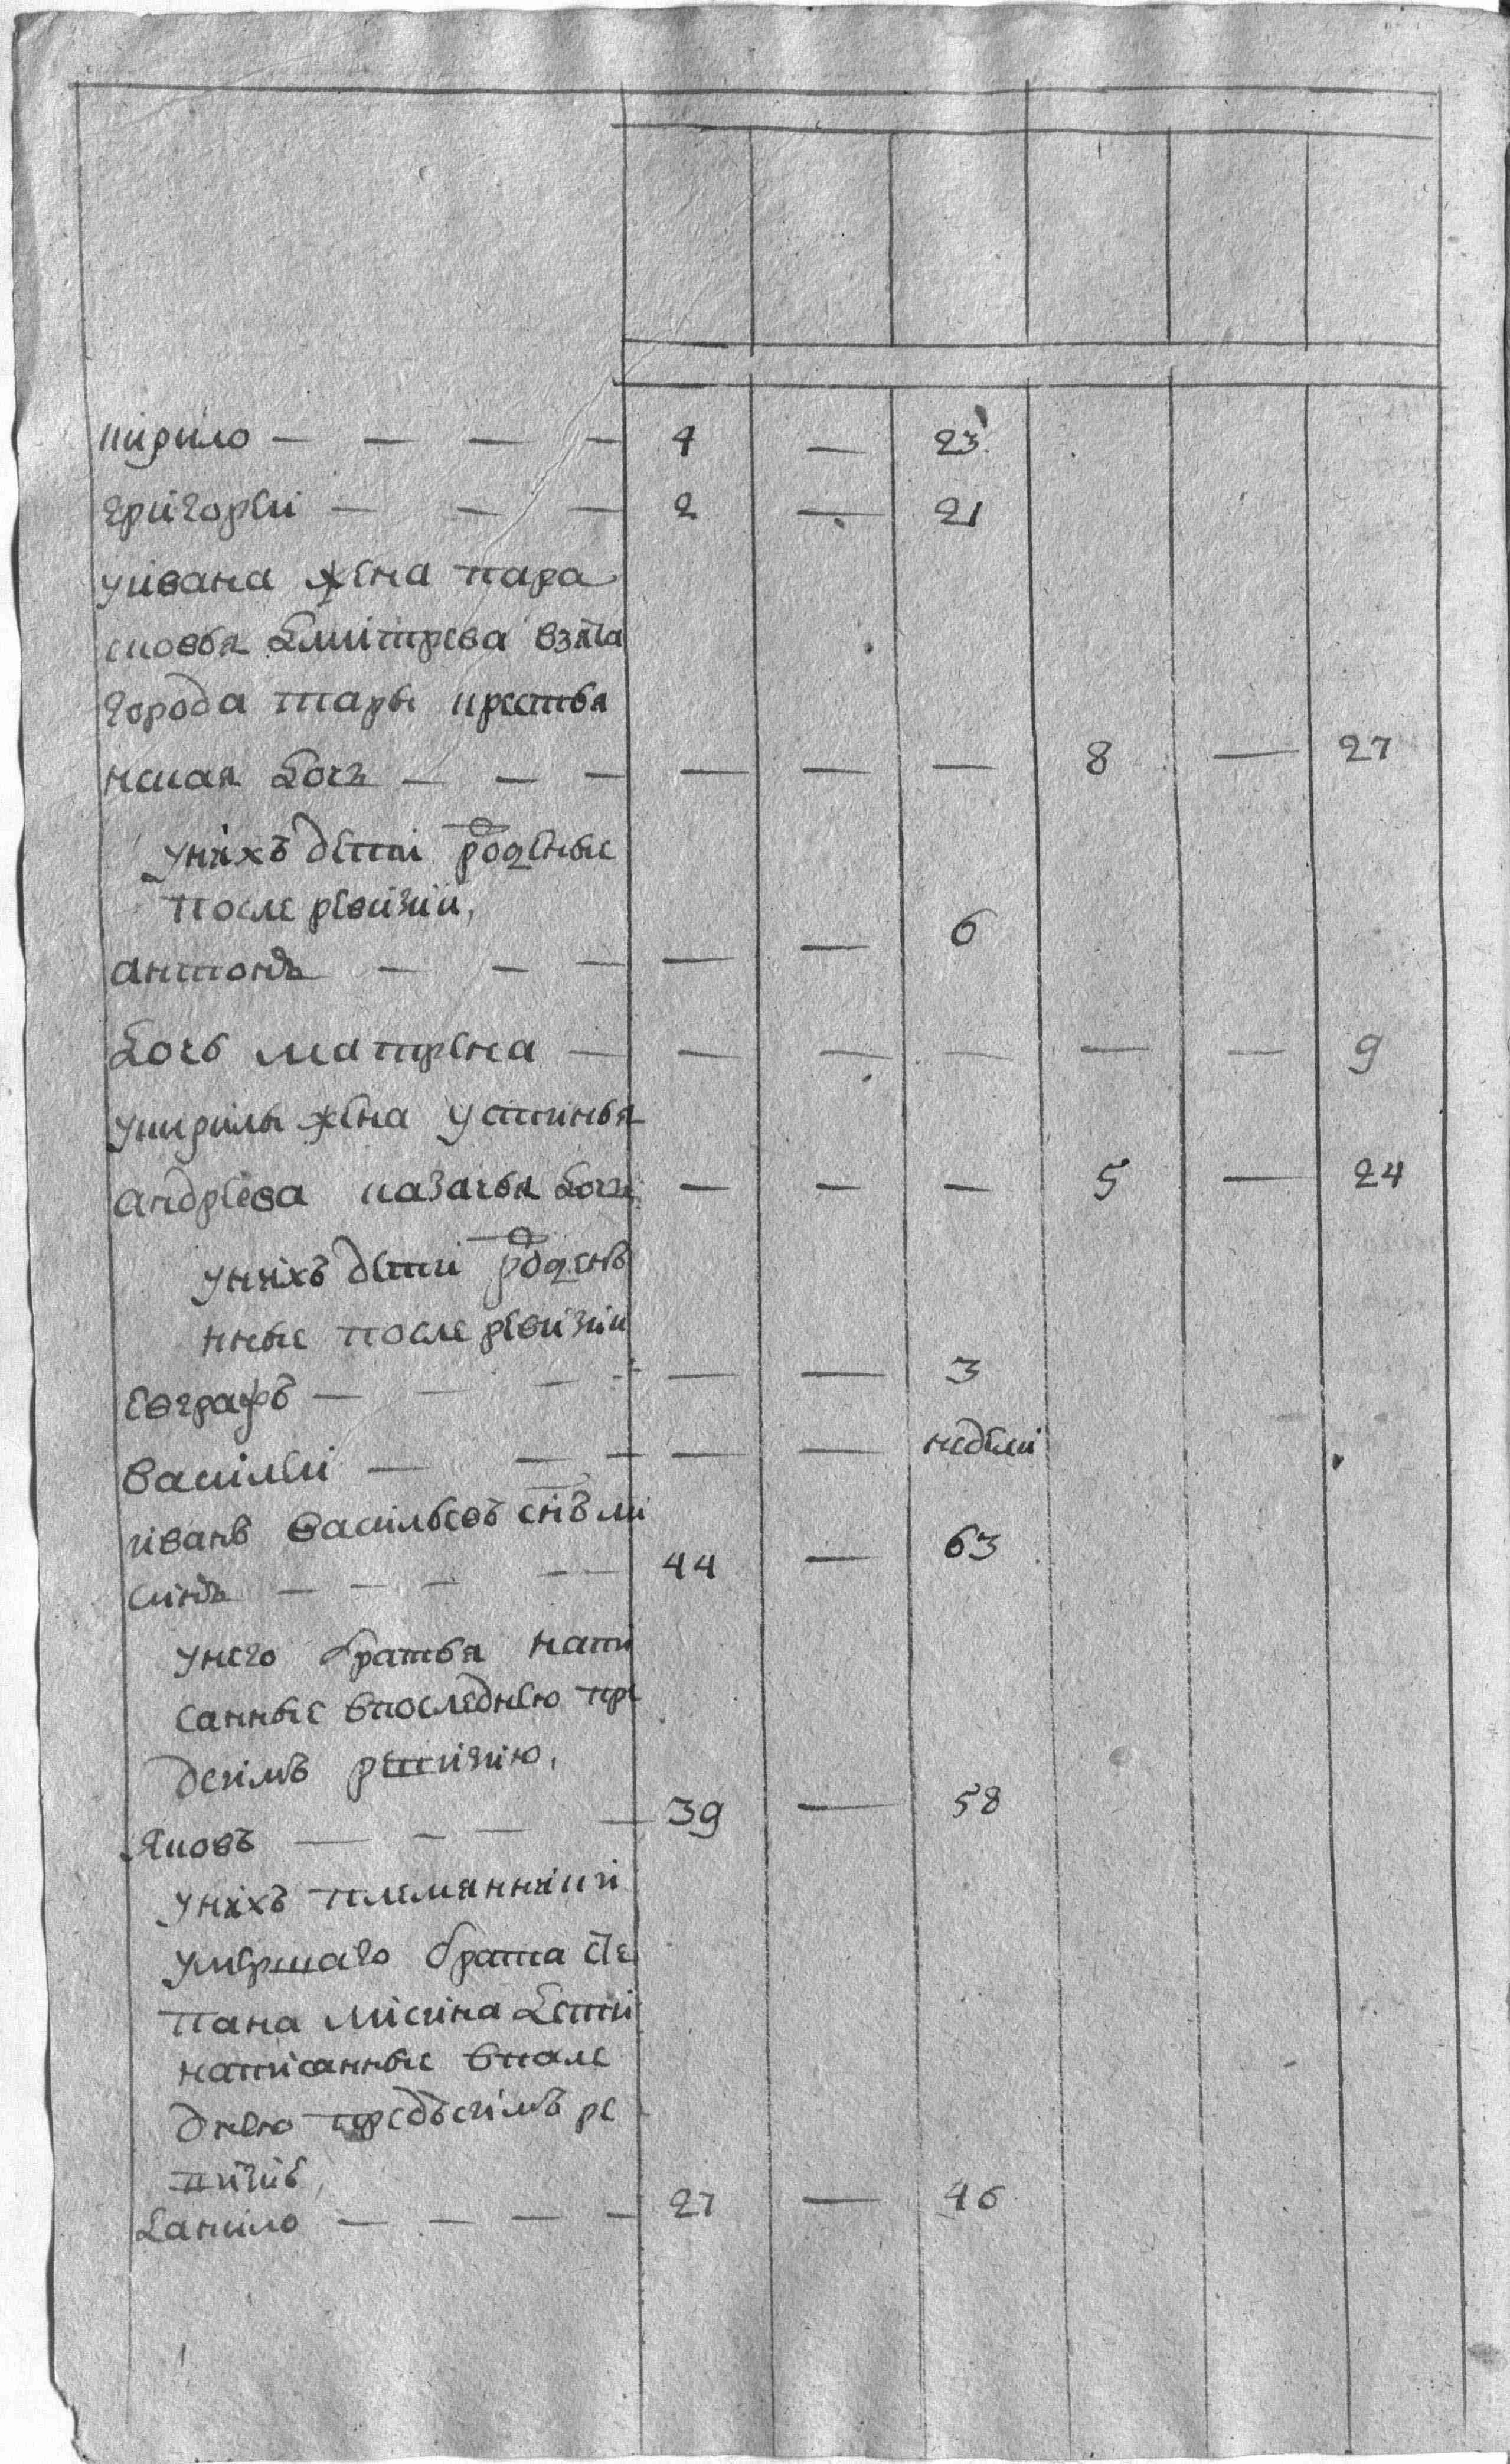 кирило — — — — 4 — 23
григореи — — — 2 — 21
уивана жена пара
сковья дмитрева взята
города тары крестья
нская дочь — — — — — — 8 — 27
униxъ дети рожденые
после ревизии,
антонъ — — — — — 6
дочь матрена — — — — — — 9
укирилы жена устинья
андреева казачья дочь — — — 5 — 24
унихъ дети рожденъ
нные после ревизии
евграфъ — — — — — 3
василеи — — — — — недели
иванъ васильевъ снъ ми
синъ — — — — — 44 — 63
унего братья напи
санные впоследнею пре
десимъ ревизию,
яковъ — — — — 39 — 58
унихъ племянники
умершаго брата сте
пана мисина дети
написанные впосле
днею предъсимъ ре

данило — — — — 27 — 46